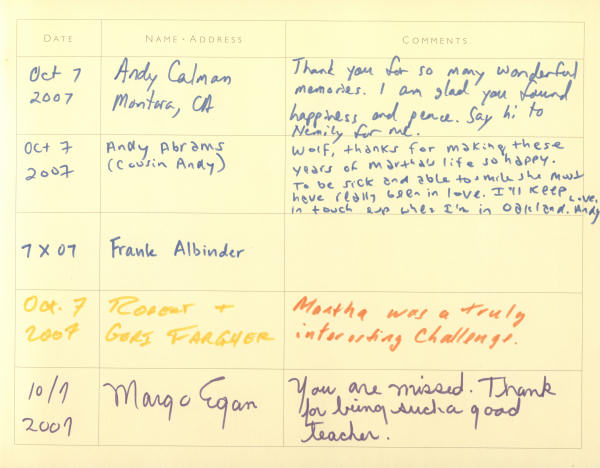 DATE NAME · ADDRESS COMMENTS
Oct 7
2007
Andy Calman
Montara, CA
Thank you for so many wonderful
memories. I am glad you found
happiness and peace. Say hi to
for me.
Oct 7
2007
Andy Abrams
(Cousin Andy)
Wolf, thanks for making these
years of Martha's life so happy.
To be sick and able to smile she must
have really been in love. I'll keep
in touch esp when I'm in Oakland. Love, Andy
7 X 07
Frank Albinder
Oct. 7
2007
Robert +
Geri Fargher
Martha was a truly
interesting challenge.
10/7
2007
Margo Egan
You are missed. Thank
for being such a good
teacher.